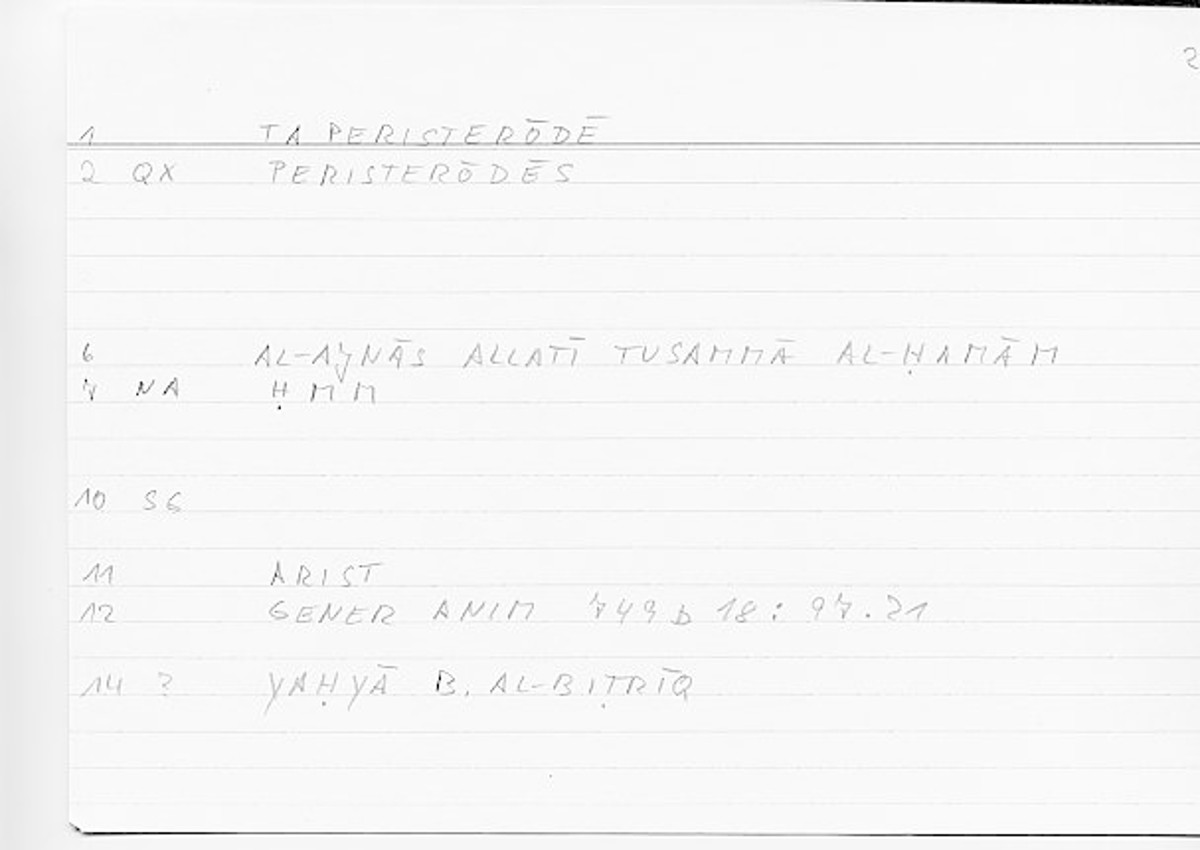 2
1 TA PERISTERŌDĒ
2 QX PERISTERŌDĒS
6 AL-AǦNĀS ALLATĪ TUSAMMĀ AL-ḤAMĀM
7 NA ḤMM
10 SG
11 ARIST
12 GENER ANIM 749 b 18 : 97.21
14 ? YAḤYĀ B. AL-BIṬRĪQ